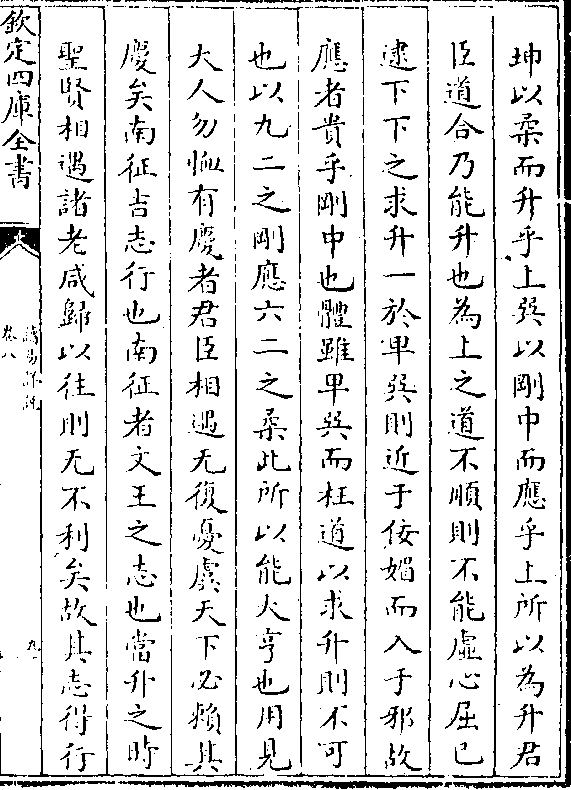 坤以柔而升乎上巽以剛中而應乎上所以為升君
臣道合乃能升也為上之道不順則不能虛心屈已
逮下下之求升一於卑巽則近于佞媚而入于邪故
應者貴乎剛中也體雖卑巽而枉道以求升則不可
也以九二之剛應六二之柔此所以能大亨也用見
大人勿恤有慶者君臣相遇无復憂虞天下必賴其
慶矣南征吉志行也南征者文王之志也當升之時
聖賢相遇諸老咸歸以往則无不利矣故其志得行
欽定四庫全書
讀易詳說
卷八
九